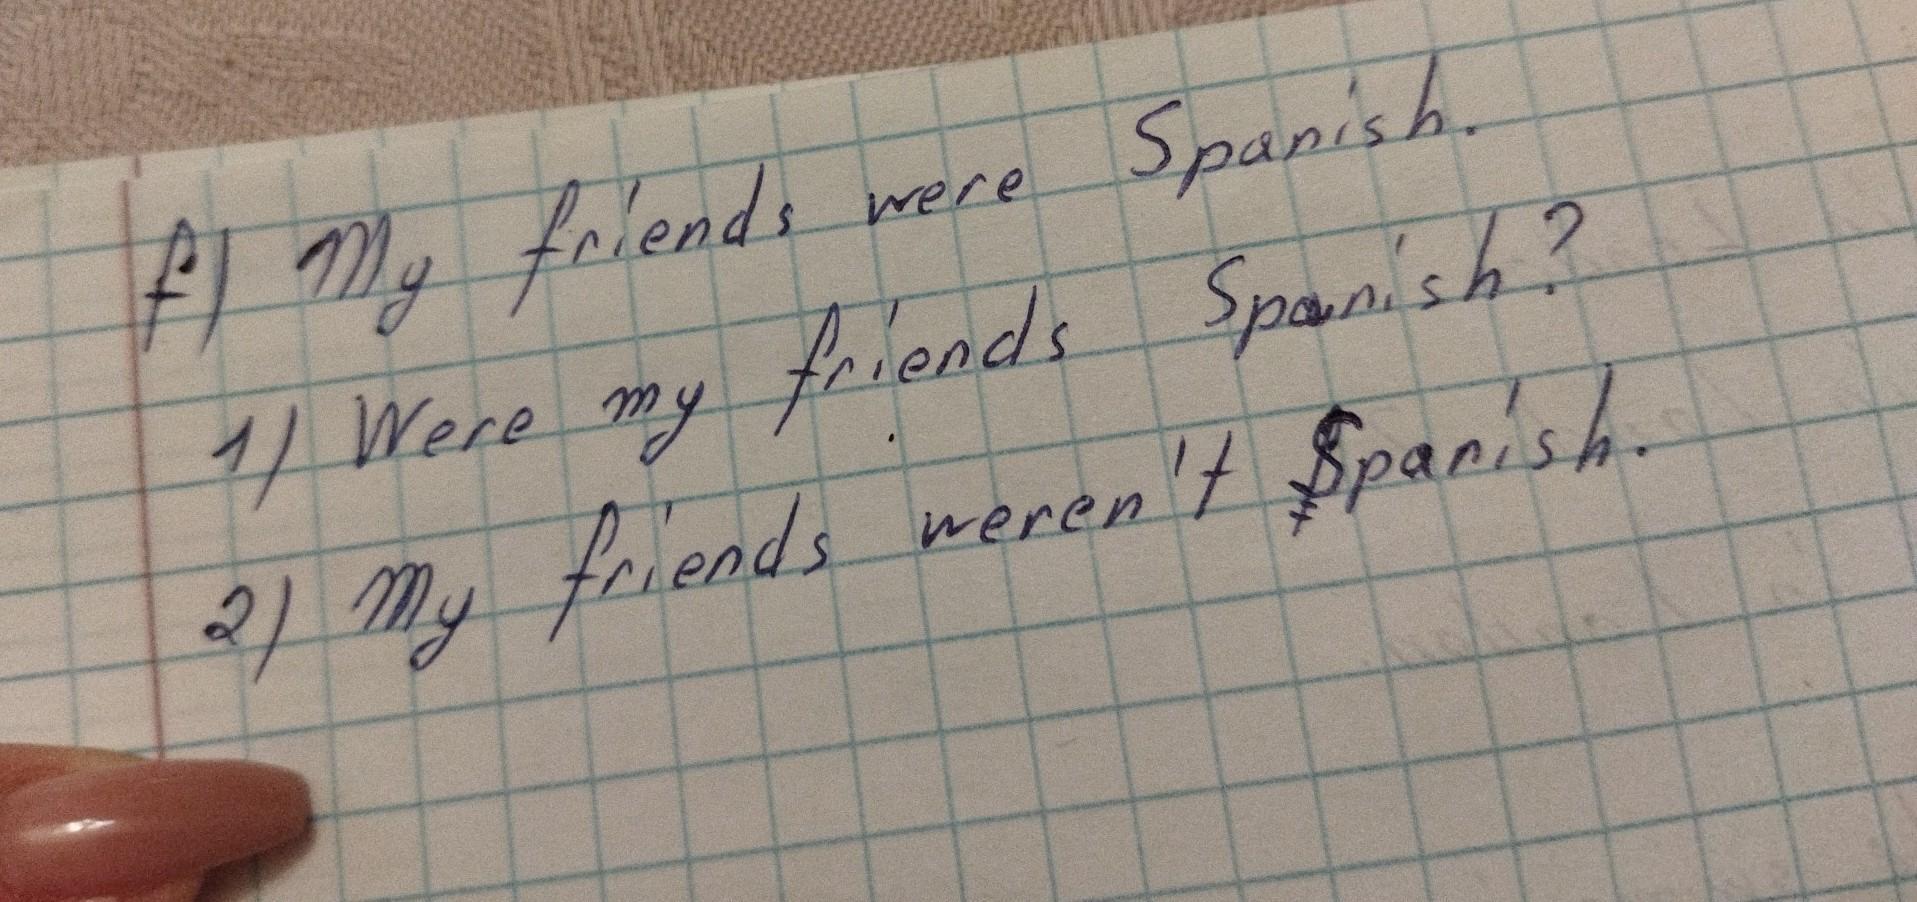 f) My friends were Spanish.
1) Were my friends Spanish?
2) My friends weren't Spanish.